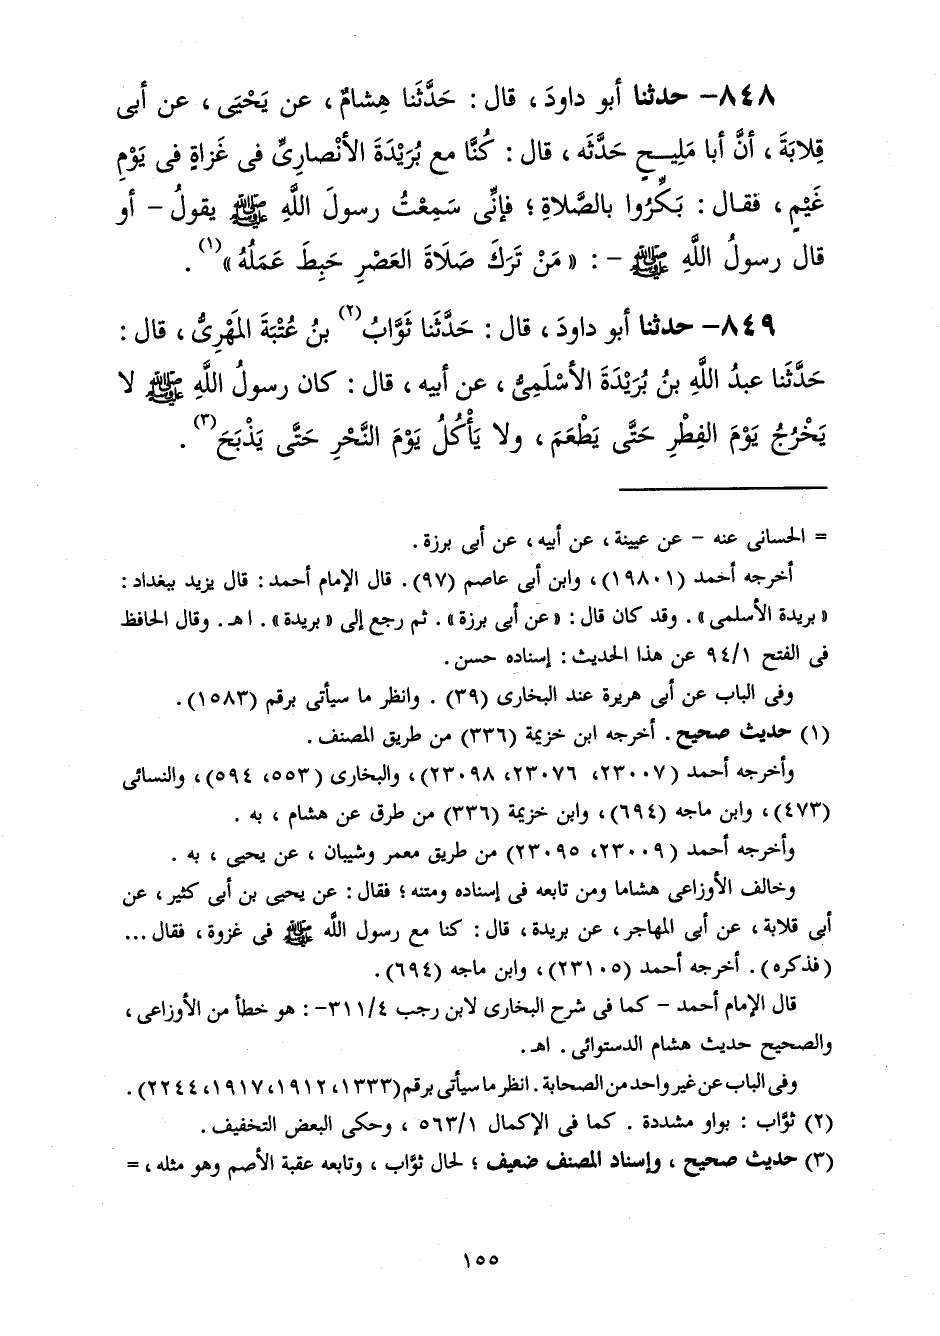 ٨٤٨- حدثنا أبو داودَ ، قال : حَدَّثَنا هِشامٌ ، عن يَحْيَى ، عن أبى
قِلابَةَ ، أنَّ أبا مَلِيحٍ حَدَّثَه ، قال : كُنَّا مع بُرَيْدَةَ الأنْصارِىِّ فى غَزاةٍ فى يَوْمِ
غَيْمٍ ، فقال : بَكِّرُوا بالصَّلاةِ ؛ فإنِّى سَمِعْتُ رسولَ اللَّهِ ﷺ يقولُ - أو
قال رسولُ اللَّهِ ﷺ - : « مَنْ تَرَكَ صَلَاةَ العَصْرِ حَبِطَ عَمَلُهُ » (١) .
٨٤٩- حدثنا أبو داودَ ، قال : حَدَّثَنا ثَوَّابُ (٢) بنُ عُتْبَةَ المَهْرِىُّ ، قال :
حَدَّثَنا عبدُ اللَّهِ بنُ بُرَيْدَةَ الأسْلَمِىُّ ، عن أبيه ، قال : كان رسولُ اللَّهِ ﷺ لا
يَخْرُجُ يَوْمَ الفِطْرِ حَتَّى يَطْعَمَ ، ولا يَأْكُلُ يَوْمَ النَّحْرِ حَتَّى يَذْبَحَ (٣) .
= الحسانى عنه - عن عيينة ، عن أبيه ، عن أبى برزة .
أخرجه أحمد (١٩٨٠١) ، وابن أبى عاصم (٩٧) . قال الإمام أحمد : قال يزيد ببغداد :
« بريدة الأسلمى » . وقد كان قال : « عن أبى برزة » . ثم رجع إلى « بريدة » . اهـ . وقال الحافظ
فى الفتح ٩٤/١ عن هذا الحديث : إسناده حسن .
وفى الباب عن أبى هريرة عند البخارى (٣٩) . وانظر ما سيأتى برقم (١٥٨٣) .
(١) حديث صحيح . أخرجه ابن خزيمة (٣٣٦) من طريق المصنف .
وأخرجه أحمد (٢٣٠٠٧، ٢٣٠٧٦، ٢٣٠٩٨) ، والبخارى (٥٥٣، ٥٩٤) ، والنسائى
(٤٧٣) ، وابن ماجه (٦٩٤) ، وابن خزيمة (٣٣٦) من طرق عن هشام ، به .
وأخرجه أحمد (٢٣٠٠٩، ٢٣٠٩٥) من طريق معمر وشيبان ، عن يحيى ، به .
وخالف الأوزاعى هشاما ومن تابعه فى إسناده ومتنه ؛ فقال : عن يحيى بن أبى كثير ، عن
أبى قلابة ، عن أبى المهاجر ، عن بريدة ، قال : كنا مع رسول اللَّه ﷺ فى غزوة ، فقال ...
(فذكره) . أخرجه أحمد (٢٣١٠٥) ، وابن ماجه (٦٩٤) .
قال الإمام أحمد - كما فى شرح البخارى لابن رجب ٣١١/٤ - : هو خطأ من الأوزاعى ،
والصحيح حديث هشام الدستوائى . اهـ .
وفى الباب عن غير واحد من الصحابة . انظر ما سيأتى برقم (١٣٣٣، ١٩١٢، ١٩١٧، ٢٢٤٤) .
(٢) ثوَّاب : بواو مشددة . كما فى الإكمال ٥٦٣/١ ، وحكى البعض التخفيف .
(٣) حديث صحيح ، وإسناد المصنف ضعيف ؛ لحال ثوَّاب ، وتابعه عقبة الأصم وهو مثله ، =
١٥٥